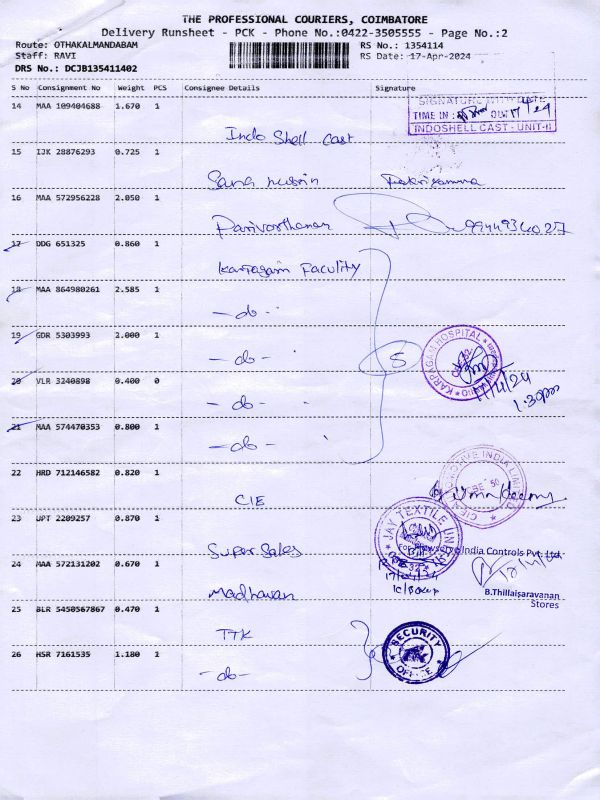 THE PROFESSIONAL COURIERS, COIMBATORE
Delivery Runsheet - PCK - Phone No.:0422-3505555 - Page No.:2
Route: OTHAKALMANDABAM
RS No.: 1354114
Staff: RAVI
RS Date: 17-Apr-2024
DRS No.: DCJB135411402
S No Consignment No Weight PCS Consignee Details Signature
14 MAA 109404688 1.670 1
SIGNATURE WITH DATE
TIME IN : OUT 17/4/24
INDOSHELL CAST - UNIT-II
Indo Shell Cast
15 IJK 28876293 0.725 1
Sana
16 MAA 572956228 2.050 1
Parivarthanan 9944934027
17 DDG 651325 0.860 1
Karpagam Faculity
18 MAA 864980261 2.585 1
- do -
19 GDR 5303993 2.000 1
- do -
5
KARPAGAM HOSPITAL
17/4/24
1.30pm
20 VLR 3240898 0.400 0
- do -
21 MAA 574470353 0.800 1
- do -
22 HRD 712146582 0.820 1
CIE
23 UPT 2209257 0.870 1
JAY TEXTILE
Super Sales
India Controls Pvt. Ltd.,
24 MAA 572131202 0.670 1
Madhavan
B.Thillaisaravanan
Stores
25 BLR 5450567867 0.470 1
TTK
SECURITY
OFFICE
26 HSR 7161535 1.180 1
- do -